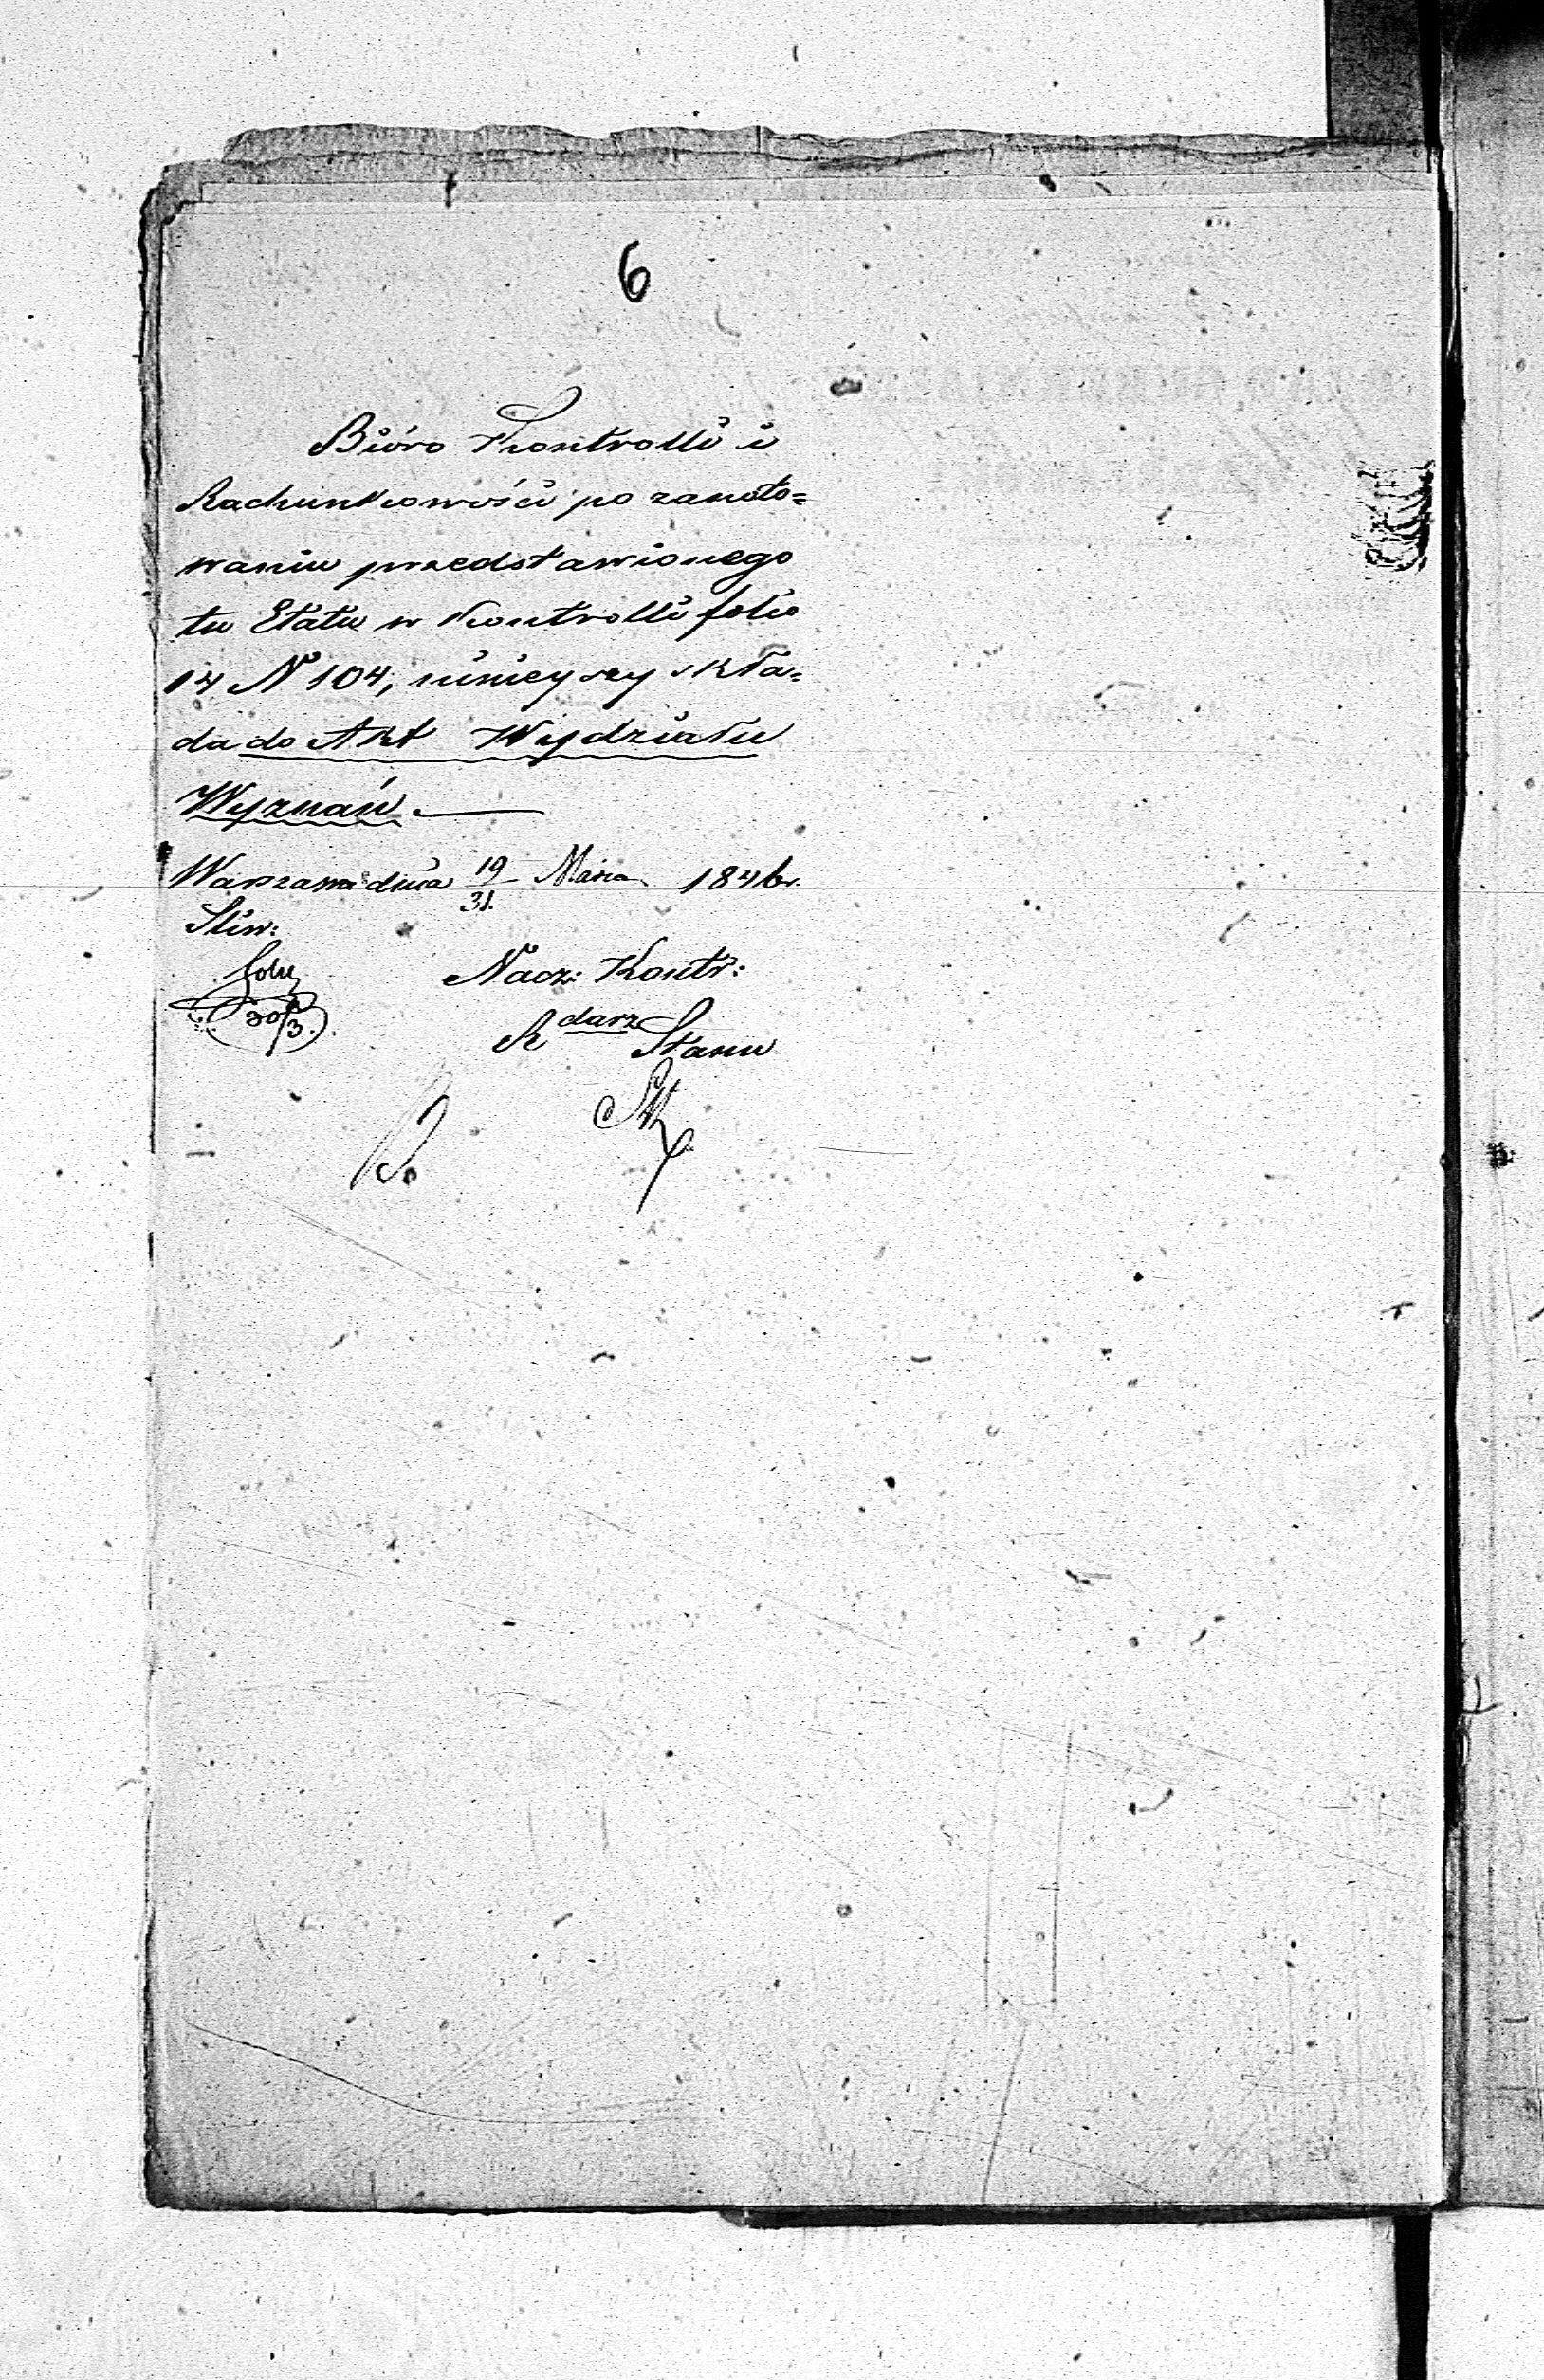 6
Biuro Kontrolli i
Rachunkowości po zanoto=
waniu przedstawionego
tu Etatu w Kontrolli folio
14 N 104, niniejszy skła=
da do Akt Wydziału
Wyznań
Warszawa dnia 19/31 Marca 1846 r.
Nacz: Kontr:
R darz Stanu
30/3.